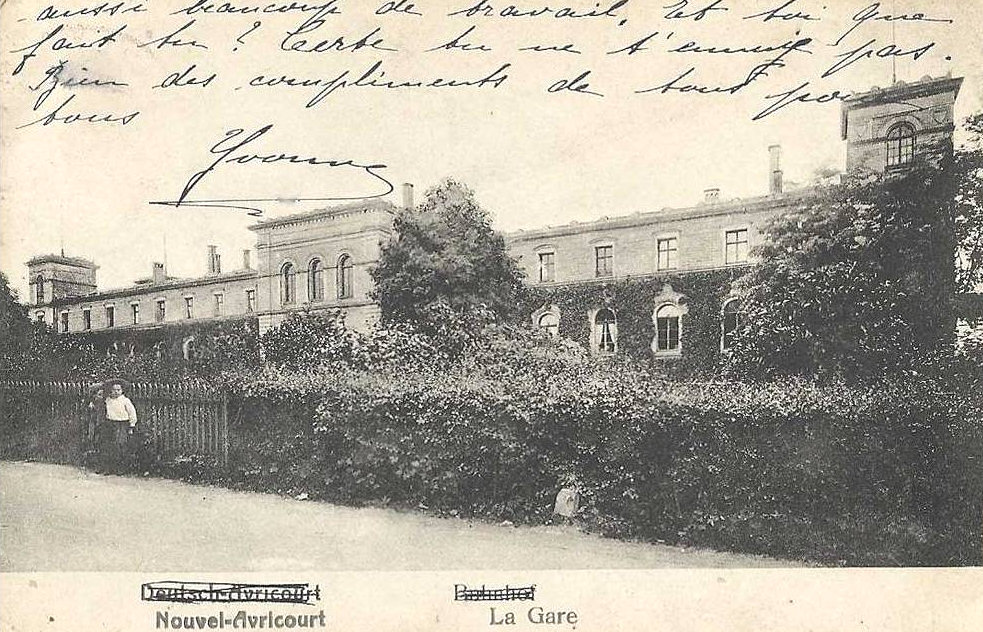 aussi beaucoup de travail. Et toi que
fait tu ? Certe tu ne t'ennuie pas.
Bien des compliments de tout pour
tous
Yvonne
Deutsch-Avricourt Bahnhof
Nouvel-Avricourt La Gare